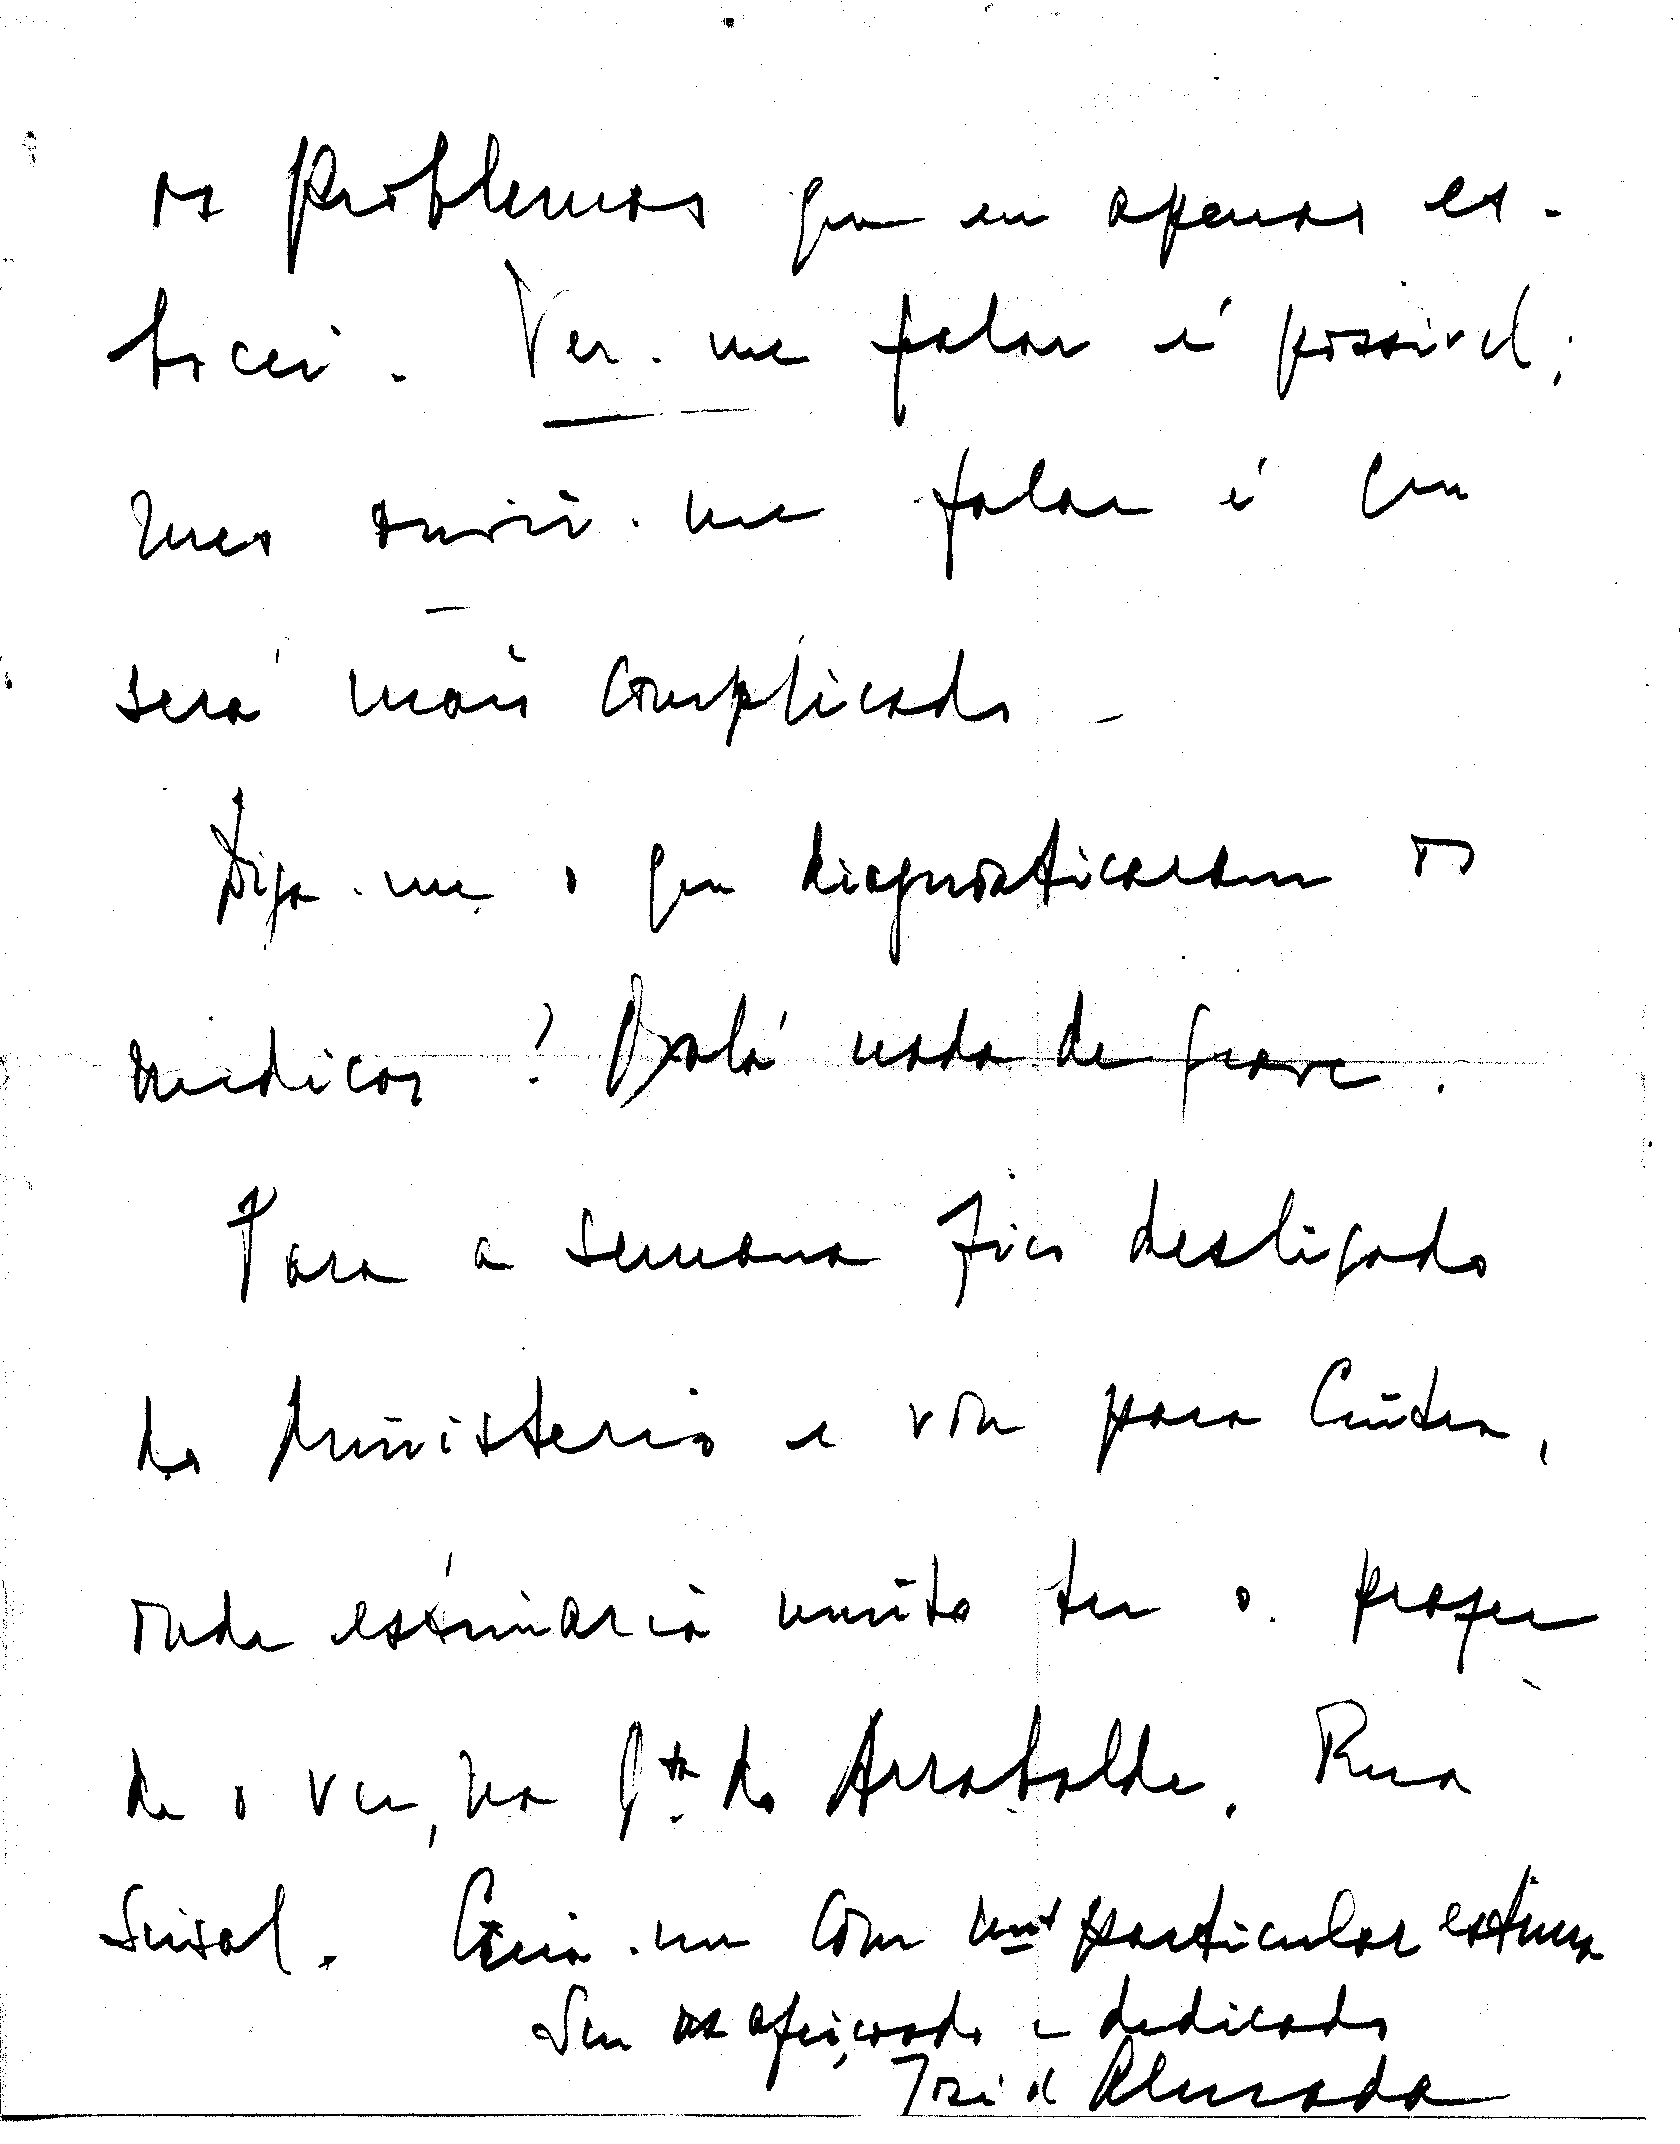 os problemas que eu apenas es-
bocei. Ver-me falar é possível;
mas ouvir-me falar é que
será mais complicado -
Diga-me o que diagnosticaram os
medicos? Oxalá nada de grave.
Para a semana fico desligado
do Ministerio e vou para Cintra,
onde estimaria muito ter o prazer
de o ver, na Qta do Arrabalde, Rua
. Creia-me com mta particular estima
Seu afeiçoado e dedicado
José d Almada